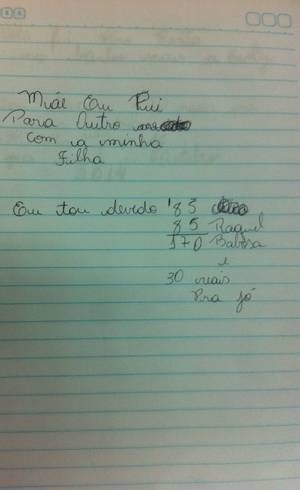 Miãe Eu Fui
Para Outro
com ia minha
Filha
Eu tou devido 85
85 Raquel
170 Babosa
e
30 reais
Pra jó